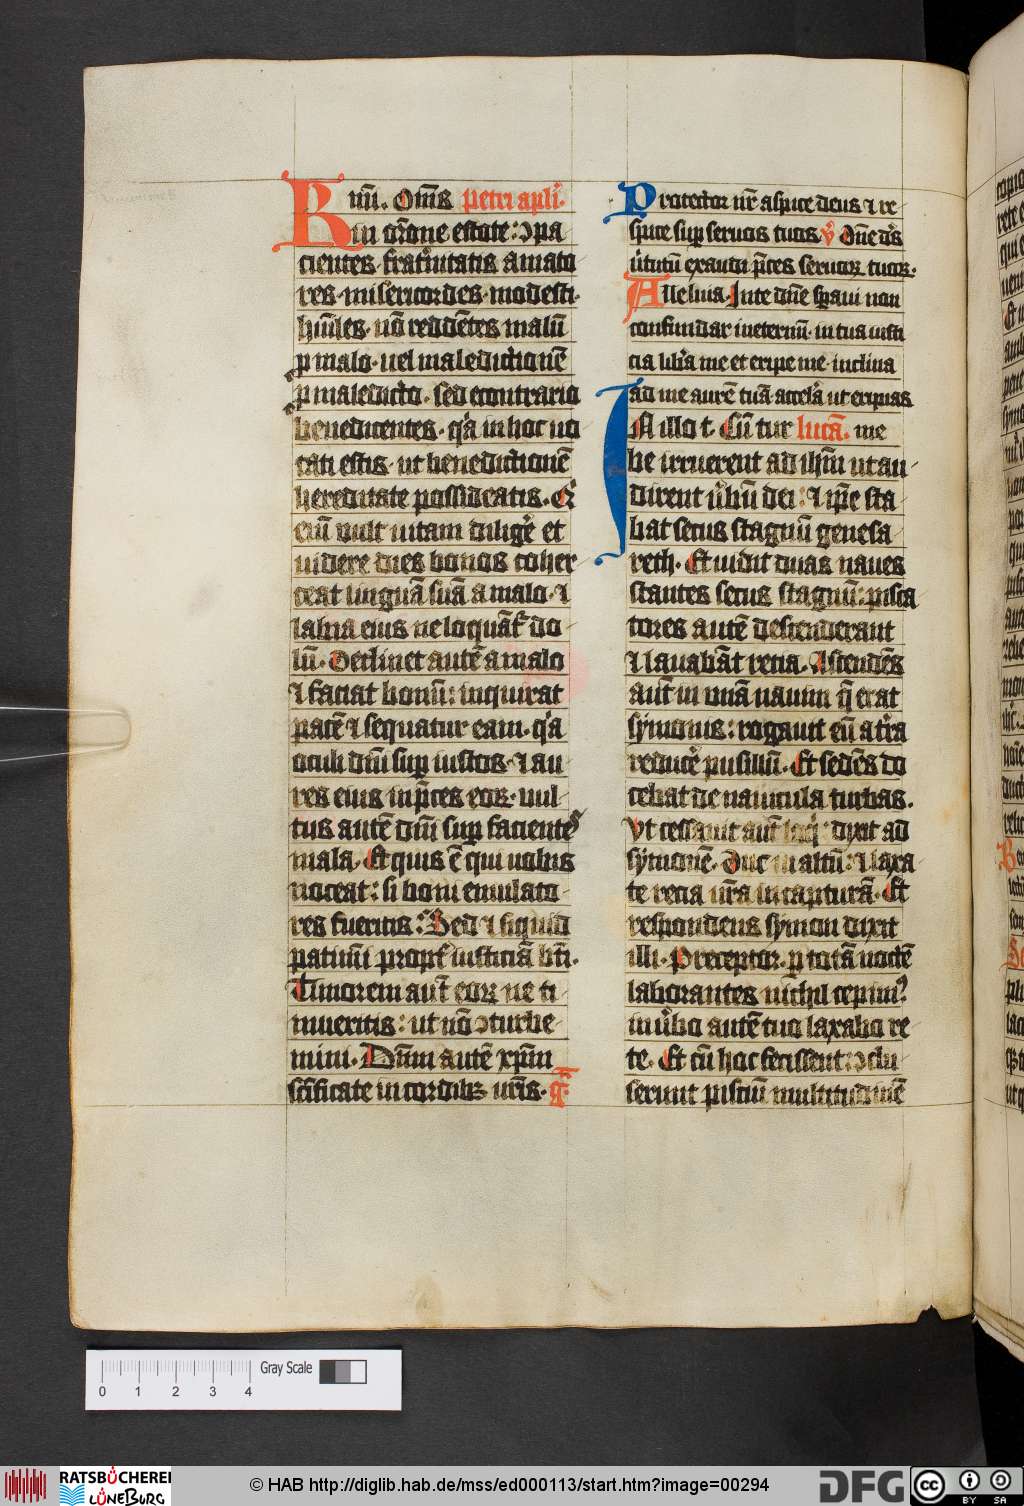 Rimi. Om̄s petri apli.
in or̄one estote: ↄpa
cientes· frat'nitatis amato
res· misericordes· modesti·
hūiles· nō reddētes malū
ꝑ malo· uel maledictionē
ꝑ maledicto· sed econtrario
benedicentes· q'a in hoc uo
cati estis· ut benedictionē
hereditate possideatis· Q'
enī uult uitam diligē et
uidere dies bonos coher
ceat linguā suā a malo· ⁊
labia eius ne loquāt' do
lū· Declinet autē a malo
⁊ faciat bonū: inquirat
pacē ⁊ sequatur eam· q'a
oculi dn̄i suꝑ iustos· ⁊ au
res eius in p̄ces eoꝝ· uul
tus autē dn̄i suꝑ facientes
mala· Et quis ē qui uobis
noceat: si boni emulato
res fueritis: Sed ⁊ siquid
patimi propt' iusticiā bt̄i·
Timorem aut̄ eoꝝ ne ti
mueritis: ut nō ↄturbe
mini· Dn̄m autē xp̄m
sc̄ificate in cordibꝫ ur̄is·
Protector nr̄ aspice deus ⁊ re
spice suꝑ seruos tuos v̄ Dn̄e ds̄
u'tutū exaudi p̄ces seruoꝝ tuoꝝ·
Alleluia· In te dn̄e sꝑaui non
confundar in eternū· in tua iusti
cia lib'a me et eripe me· inclina
ad me aurē tuā accel'a ut eripias
IN illo t· Cū tur lucā· me
be irruerent ad ih̄m ut au
dirent u'bū dei: ⁊ ip̄e sta
bat secus stagnū genesa
reth· Et uidit duas naues
stantes secus stagnū: pisca
tores autē descenderant
⁊ lauabāt recia· Ascendēs
aut̄ in unā nauim q̄ erat
symonis: rogauit eū a t'ra
reducē pusillū· Et sedēs do
cebat de nauicula turbas·
Vt cessauit aut̄ loq': dixit ad
symonē· Duc in altū: ⁊ laxa
te recia ur̄a in capturā· Et
respondens symon dixit
illi· Preceptor· ꝑ totā noctē
laborantes nichil cepim⁹
in u'bo autē tuo laxabo re
te· Et cū hoc fecissent: ↄclu
serunt pisciū multitudinē
Gray Scale
0 1 2 3 4
RATSBÜCHEREI
LÜNEBURG
© HAB http://diglib.hab.de/mss/ed000113/start.htm?image=00294
DFG
cc BY SA